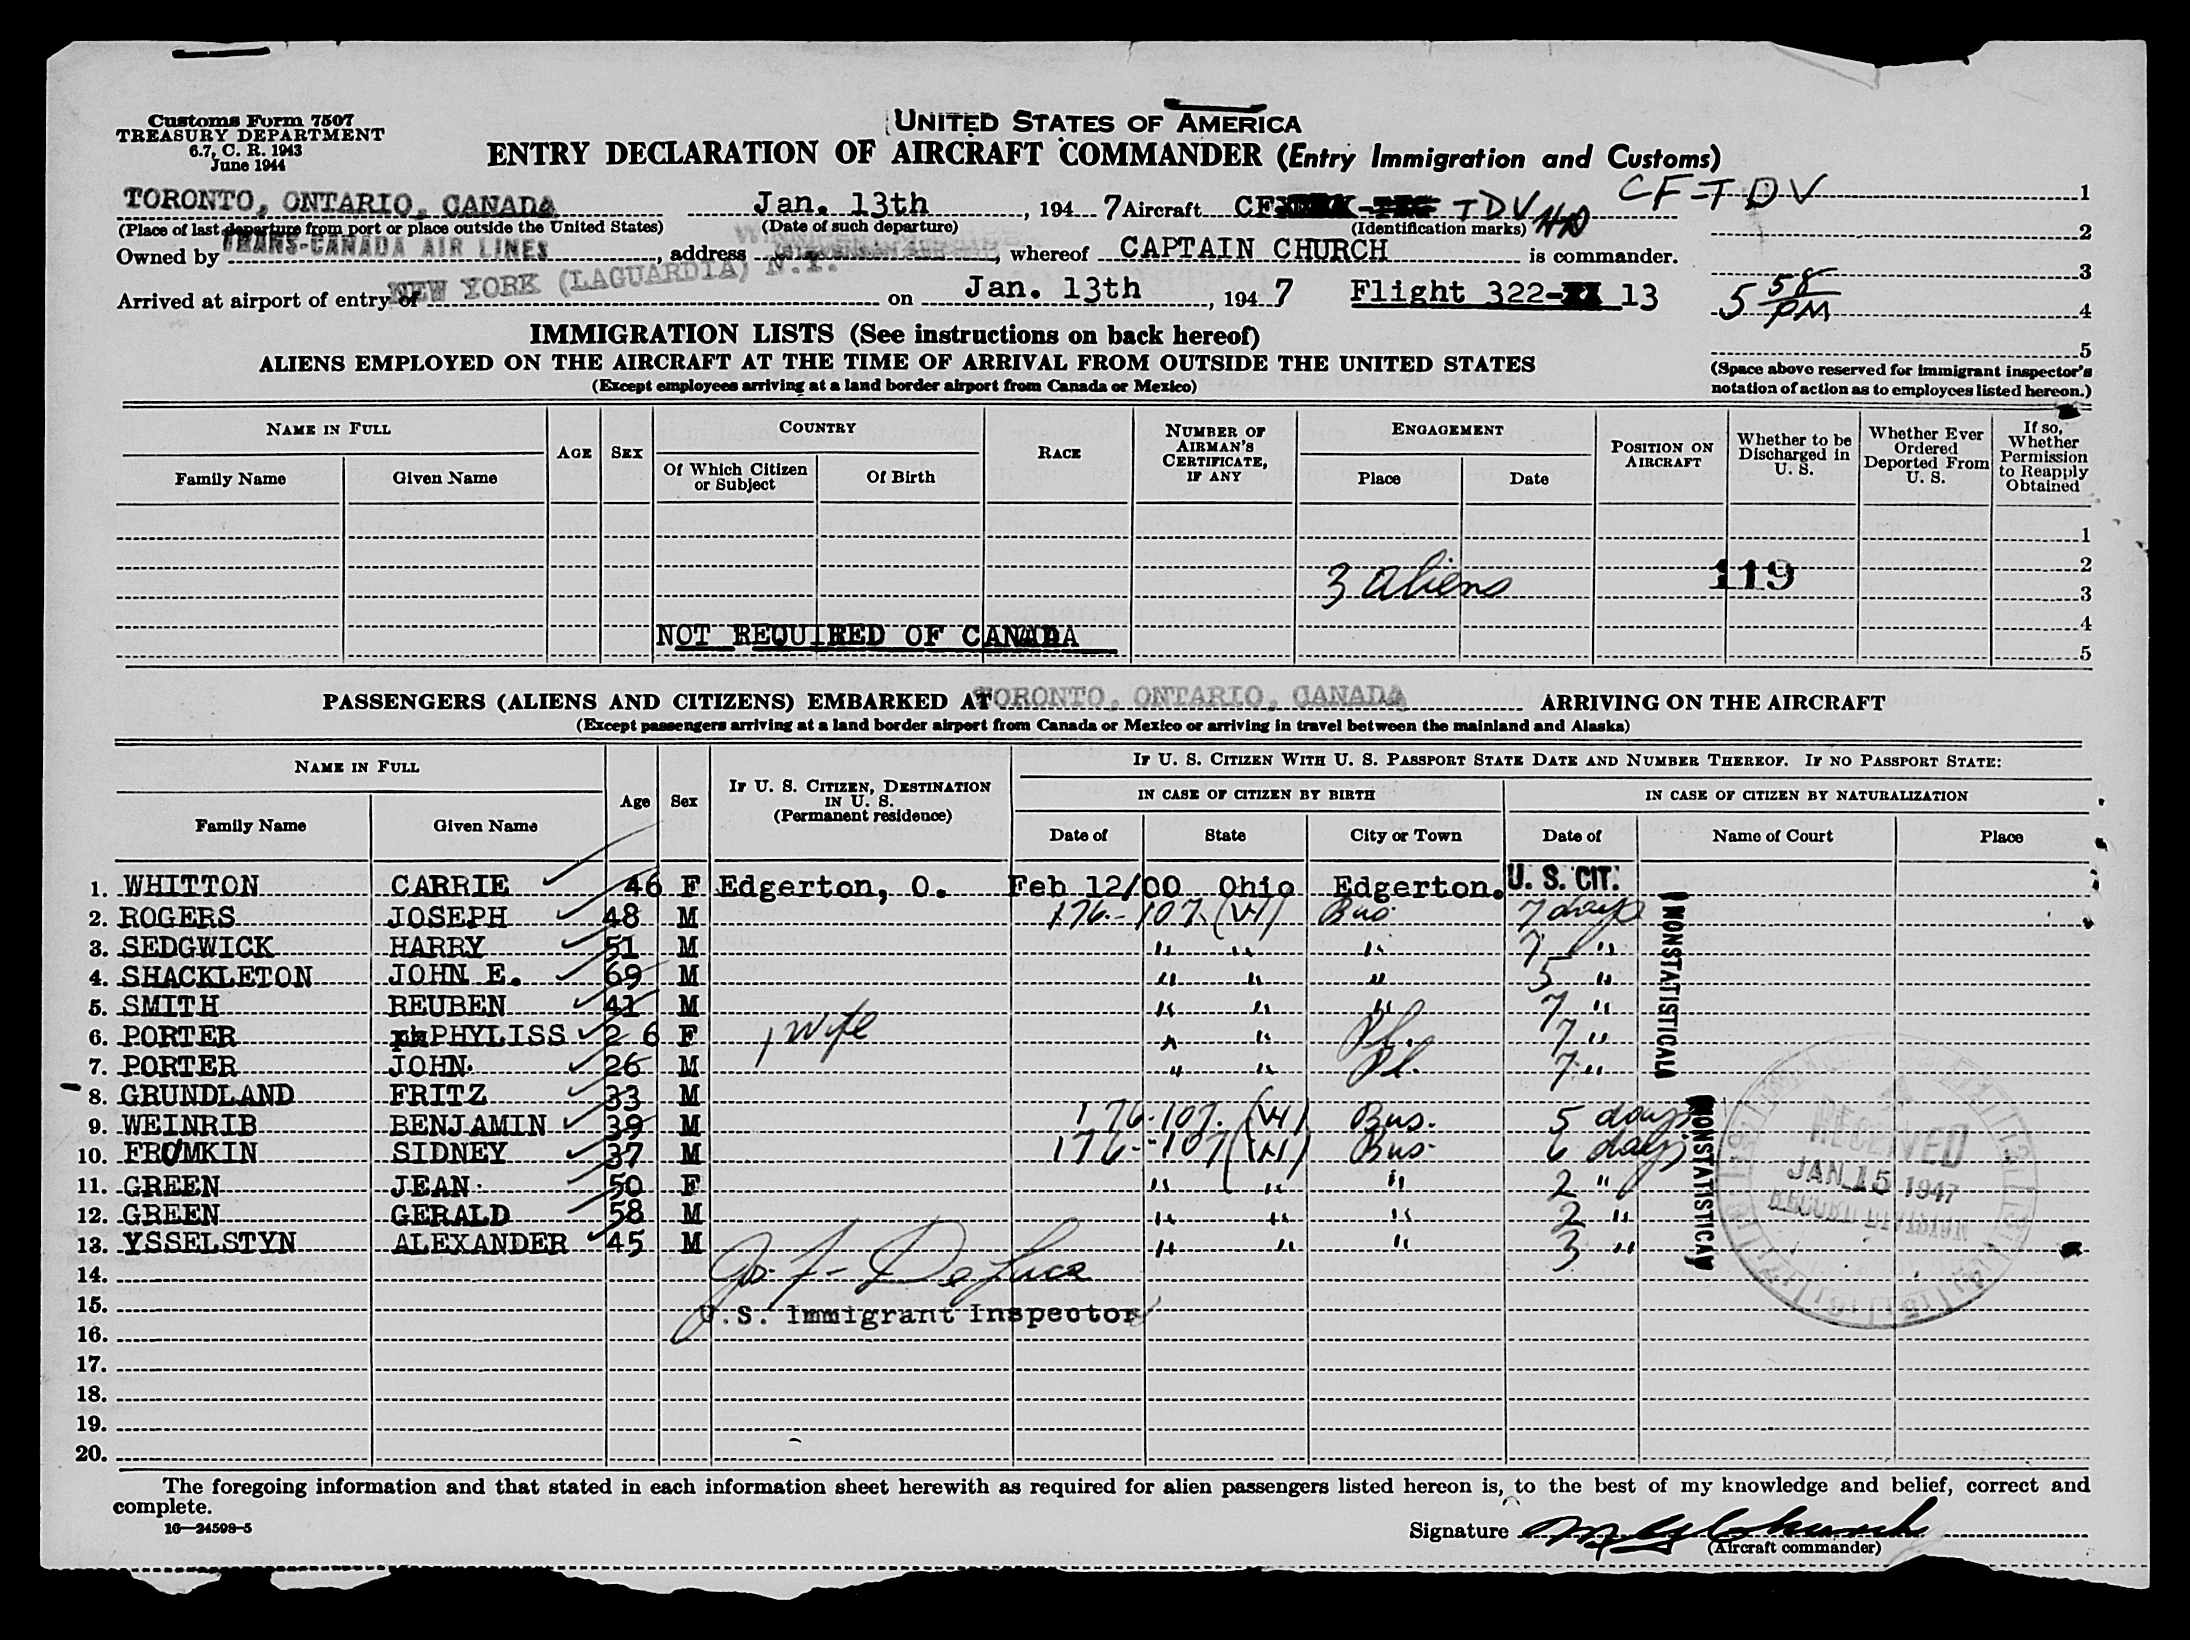 Customs Form 7507
TREASURY DEPARTMENT
6.7, C. R. 1943
June 1944
UNITED STATES OF AMERICA
ENTRY DECLARATION OF AIRCRAFT COMMANDER (Entry Immigration and Customs)
TORONTO, ONTARIO, CANADA Jan. 13th, 194 7 Aircraft CF TDV CF-TDV 1
(Place of last departure from port or place outside the United States) (Date of such departure) (Identification marks) 2
Owned by TRANS-CANADA AIR LINES, address, whereof CAPTAIN CHURCH is commander. 3
Arrived at airport of entry of NEW YORK (LAGUARDIA) N.Y. on Jan. 13th, 194 7 Flight 322- 13 5 58 PM 4
5
IMMIGRATION LISTS (See instructions on back hereof)
ALIENS EMPLOYED ON THE AIRCRAFT AT THE TIME OF ARRIVAL FROM OUTSIDE THE UNITED STATES
(Except employees arriving at a land border airport from Canada or Mexico)
(Space above reserved for immigrant inspector's notation of action as to employees listed hereon.)
NAME IN FULL AGE SEX COUNTRY RACE NUMBER OF AIRMAN'S CERTIFICATE, IF ANY ENGAGEMENT POSITION ON AIRCRAFT Whether to be Discharged in U. S. Whether Ever Ordered Deported From U. S. If so, Whether Permission to Reapply Obtained
Family Name Given Name Of Which Citizen or Subject Of Birth Place Date
1
2
3 aliens 119 3
NOT REQUIRED OF CANADA 4
5
PASSENGERS (ALIENS AND CITIZENS) EMBARKED AT TORONTO, ONTARIO, CANADA ARRIVING ON THE AIRCRAFT
(Except passengers arriving at a land border airport from Canada or Mexico or arriving in travel between the mainland and Alaska)
NAME IN FULL Age Sex IF U. S. CITIZEN, DESTINATION IN U. S. (Permanent residence) IF U. S. CITIZEN WITH U. S. PASSPORT STATE DATE AND NUMBER THEREOF. IF NO PASSPORT STATE:
IN CASE OF CITIZEN BY BIRTH IN CASE OF CITIZEN BY NATURALIZATION
Family Name Given Name Date of State City or Town Date of Name of Court Place
1. WHITTON CARRIE 46 F Edgerton, O. Feb 12/00 Ohio Edgerton. U. S. CIT.
2. ROGERS JOSEPH 48 M 176.-107. (VI) Bus. 7 days
3. SEDGWICK HARRY 51 M " " " 7 "
4. SHACKLETON JOHN E. 69 M " " " 5 "
5. SMITH REUBEN 41 M " " " 7 "
6. PORTER PHYLISS 2 6 F , wife " " Pl. 7 "
7. PORTER JOHN. 26 M " " Pl. 7 "
8. GRUNDLAND FRITZ 33 M
9. WEINRIB BENJAMIN 39 M 176-107. (VI) Bus. 5 days
10. FROMKIN SIDNEY 37 M 176-107 (VI) Bus. 6 days
11. GREEN JEAN 50 F " " " 2 "
12. GREEN GERALD 58 M " " " 2 "
13. YSSELSTYN ALEXANDER 45 M " " " 3 "
NONSTATISTICAL
NONSTATISTICAL
RECEIVED
JAN 15 1947
RECORD DIVISION
14. Jos. F. DeLuca
15. U.S. Immigrant Inspector
16.
17.
18.
19.
20.
The foregoing information and that stated in each information sheet herewith as required for alien passengers listed hereon is, to the best of my knowledge and belief, correct and
complete.
16—24598-5
Signature
(Aircraft commander)